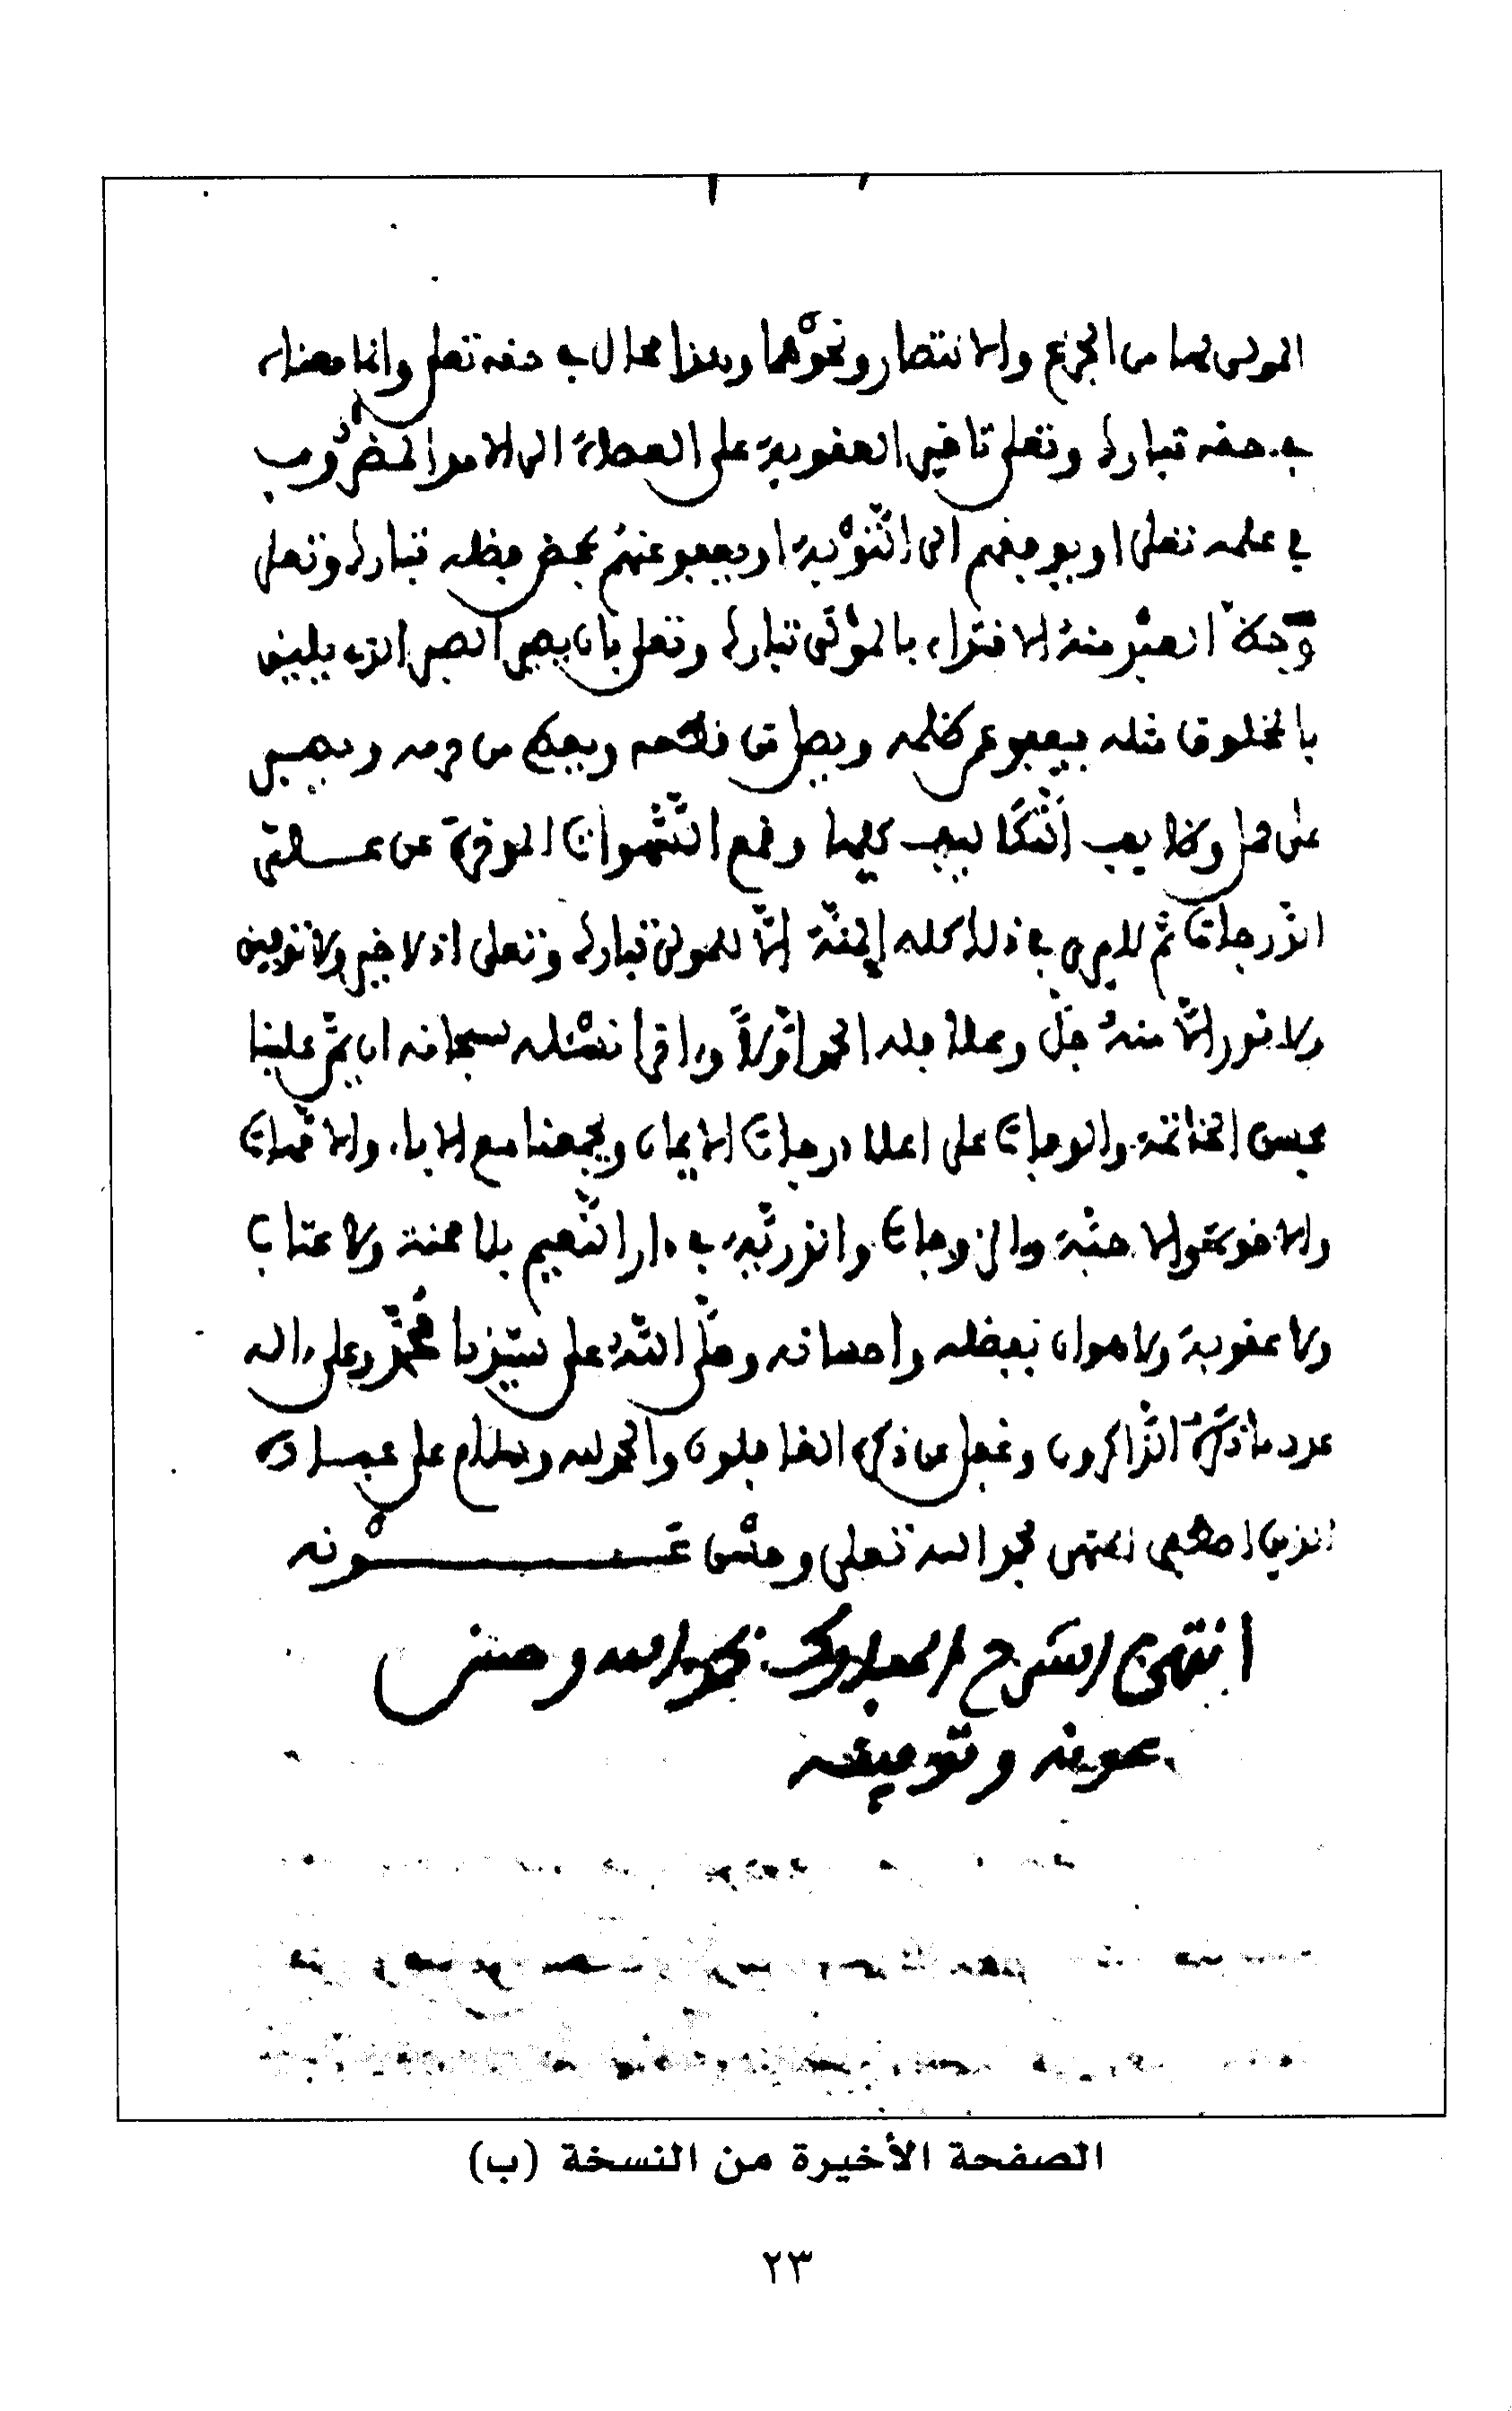 المولى لها من الجزع والانتصار ونحوهما وهذا محال في حقه تعلى وانما معناه
في حقه تبارك وتعلى تاخير العقوبة على العصاة الى الامد المضروب
في علمه تعلى او يوفقهم الى التوبة او يعفو عنهم بمحض فضله تبارك وتعلى
وحظ العبد منه الاقتداء بالمولى تبارك وتعلى بان يصبر الصبر الذي يليق
بالمخلوق مثله فيعفو عن ظلمه ويصل من قطعه ويعطي من حرمه ويصبر
على فعل وكل ما يعب التكاليف كلها وقمع الشهوات الموفرة عن
الدرجات ثم لله في ذلك كله المنة الا للمولى تبارك وتعلى اذ لا خير ولا توفيق
ولا نور الا منه جل وعلا فله الحمد اولا واخرا نسئله سبحانه ان يمن علينا
بحسن الخاتمة والوفات على اعلا درجات الايمان ويجمعنا مع الاباء والامهات
والاخوة والاحبة والزوجات والذرية في دار النعيم بلا محنة ولا عتاب
ولا عقوبة ولا هوان بفضله واحسانه وصلى الله على سيدنا محمد وعلى ءاله
عدد ما ذكره الذاكرون وغفل عن ذكره الغافلون والحمد لله وسلام على عباده
الذين اصطفى انتهى بحمد الله تعلى وحسن عونه
انتهى الشرح المبارك بحمد الله وحسن
عونه وتوفيقه
الصفحة الأخيرة من النسخة (ب)
٢٣